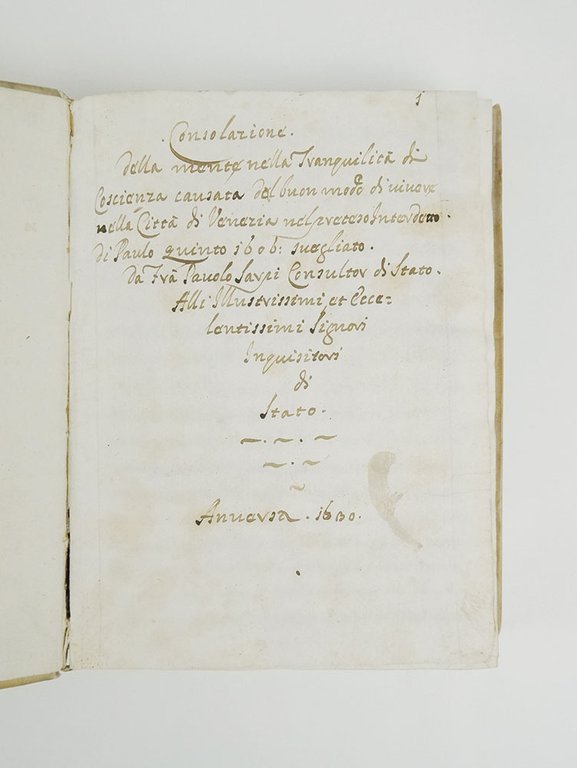 1
. Consolazione .
della mente nella Tranquilità di
Coscienza causata del buon modo di vivere
nella Città di Venezia nel preteso Interdetto .
di Paulo quinto 1606 : svegliato .
Da Frà Pauolo Sarpi Consultor di Stato .
Alli Illustrissimi et Ecce=
lentissimi Signori
Inquisitori
di
Stato .
Anversa . 1630 .